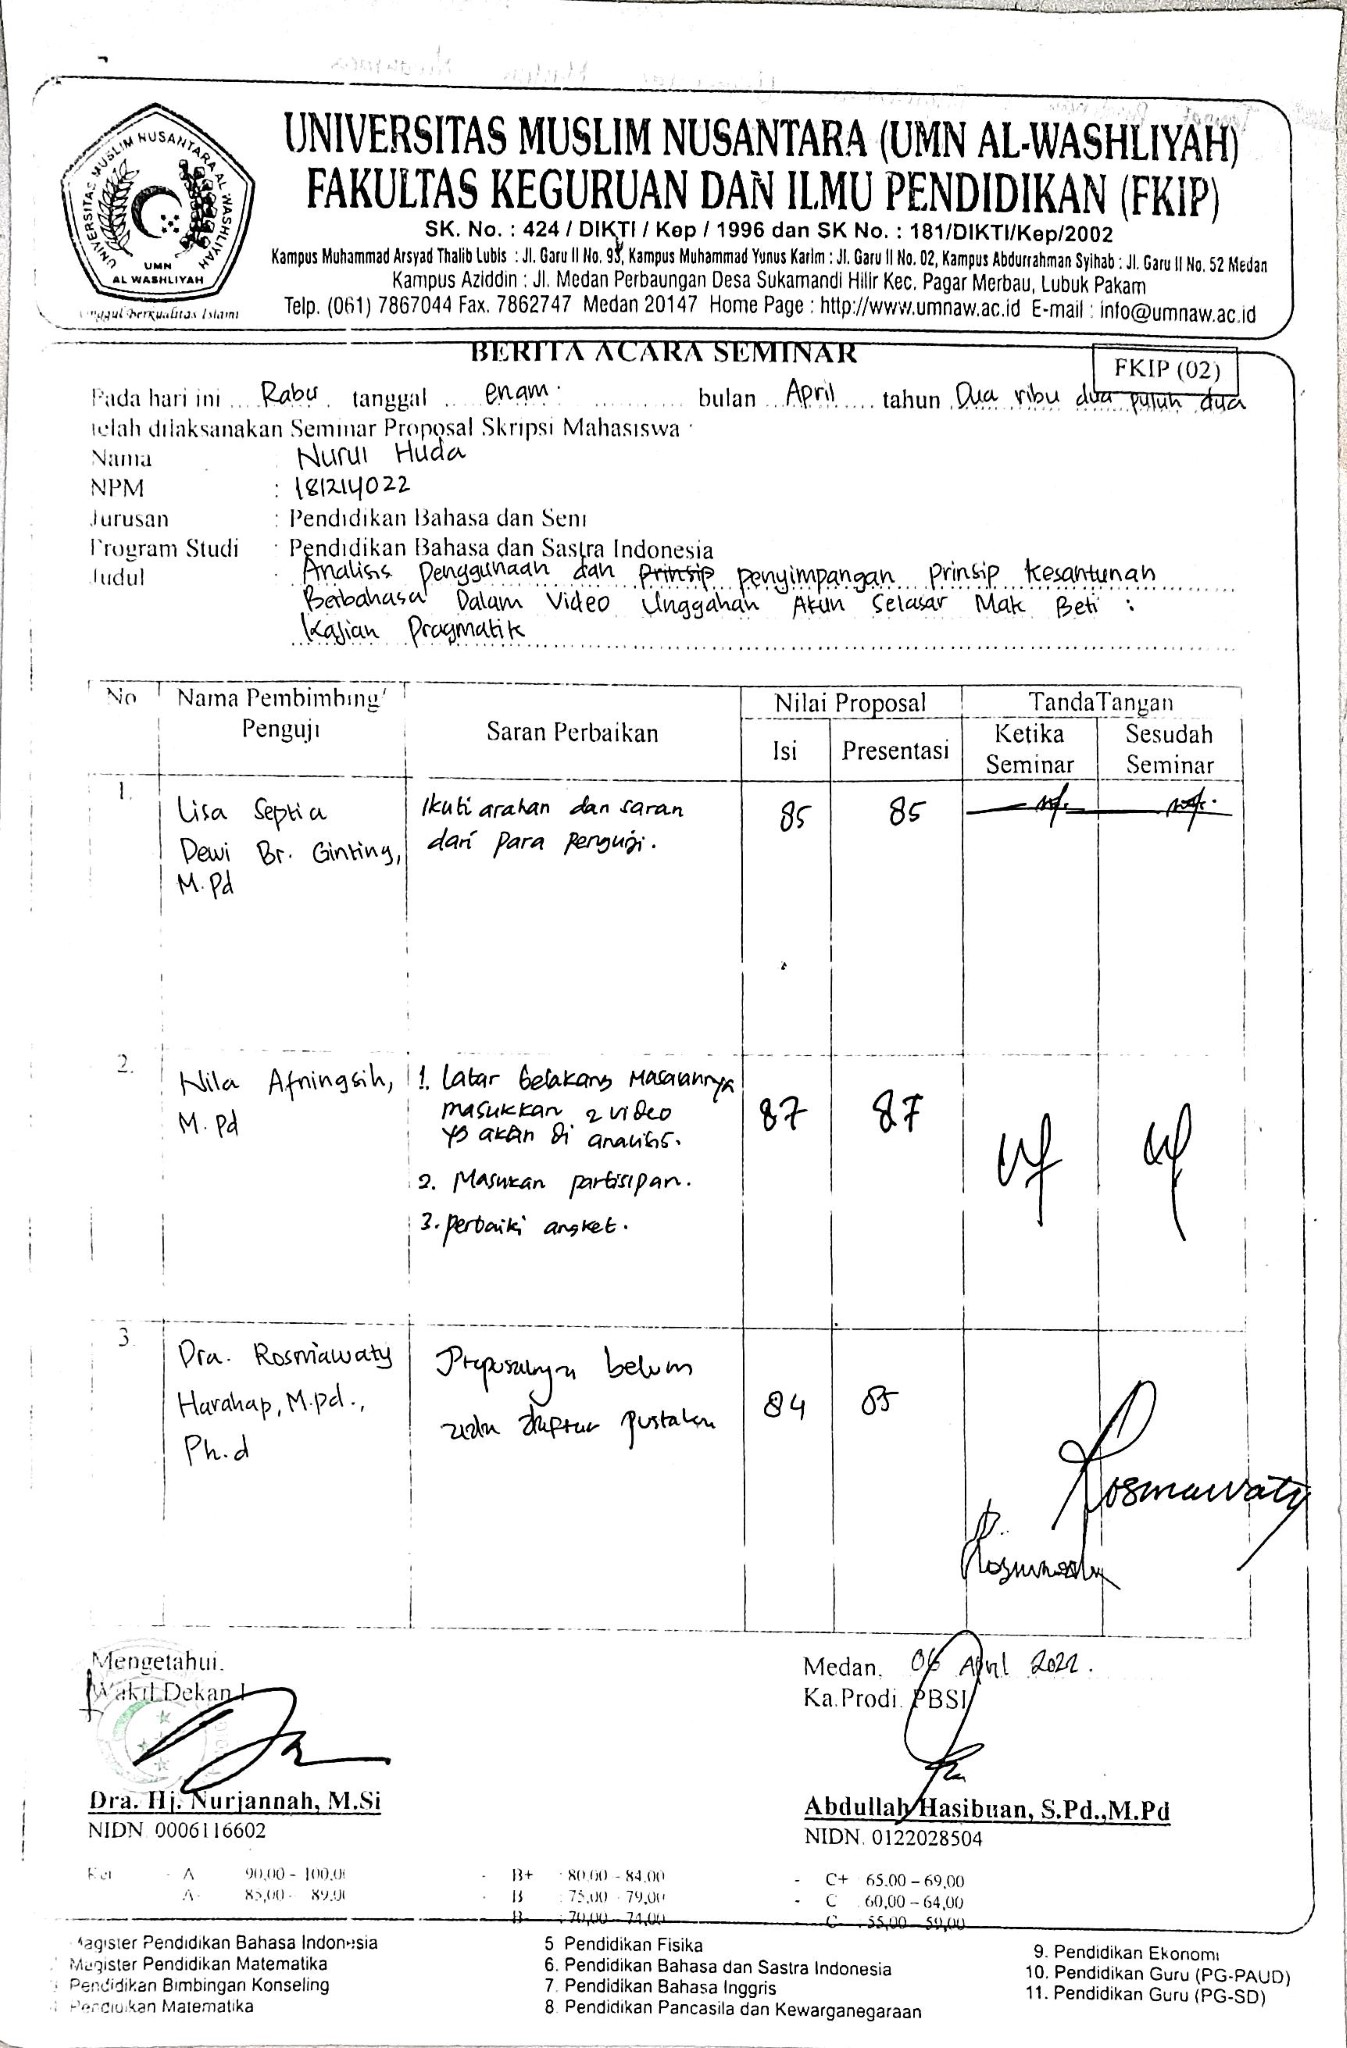 UNIVERSITAS MUSLIM NUSANTARA AL WASHLIYAH
UMN
AL WASHLIYAH
Unggul Berkualitas Islami
UNIVERSITAS MUSLIM NUSANTARA (UMN AL-WASHLIYAH)
FAKULTAS KEGURUAN DAN ILMU PENDIDIKAN (FKIP)
SK. No. : 424 / DIKTI / Kep / 1996 dan SK No. : 181/DIKTI/Kep/2002
Kampus Muhammad Arsyad Thalib Lubis : Jl. Garu II No. 93, Kampus Muhammad Yunus Karim : Jl. Garu II No. 02, Kampus Abdurrahman Syihab : Jl. Garu II No. 52 Medan
Kampus Aziddin : Jl. Medan Perbaungan Desa Sukamandi Hilir Kec. Pagar Merbau, Lubuk Pakam
Telp. (061) 7867044 Fax. 7862747 Medan 20147 Home Page : http://www.umnaw.ac.id E-mail : info@umnaw.ac.id
BERITA ACARA SEMINAR
FKIP (02)
Pada hari ini Rabu tanggal enam bulan April tahun Dua ribu dua puluh dua
telah dilaksanakan Seminar Proposal Skripsi Mahasiswa :
Nama : Nurul Huda
NPM : 181214022
Jurusan : Pendidikan Bahasa dan Seni
Program Studi : Pendidikan Bahasa dan Sastra Indonesia
Judul : Analisis Penggunaan dan prinsip penyimpangan prinsip Kesantunan
Berbahasa Dalam Video Unggahan Akun Selasar Mak Beti :
Kajian Pragmatik
No Nama Pembimbing/ Penguji Saran Perbaikan Nilai Proposal TandaTangan
Isi Presentasi Ketika Seminar Sesudah Seminar
1. Lisa Septia Ikuti arahan dan saran 85 85
Dewi Br. Ginting, dari para penguji.
M.Pd
2. Nila Afningsih, 1. Latar belakang masalahnya 87 87
M.Pd masukkan 2 video
yg akan di analisis.
2. Masukan partisipan.
3. perbaiki angket.
3. Dra. Rosmawaty Proposalnya belum 84 85
Harahap, M.Pd., ada daftar pustaka
Ph.d
Rosmawaty
Rosmawaty
Mengetahui.
Wakil Dekan I
Medan, 06 April 2022.
Ka.Prodi. PBSI
Dra. Hj. Nurjannah, M.Si
NIDN. 0006116602
Abdullah Hasibuan, S.Pd.,M.Pd
NIDN. 0122028504
Ket - A 90,00 - 100,00 - B+ : 80,00 - 84,00 - C+ 65,00 – 69,00
A- 85,00 - 89,00 - B : 75,00 - 79,00 - C 60,00 – 64,00
B- : 70,00 - 74,00 - C- 55,00 - 59,00
Magister Pendidikan Bahasa Indonesia
Magister Pendidikan Matematika
3 Pendidikan Bimbingan Konseling
4 Pendidikan Matematika
5 Pendidikan Fisika
6. Pendidikan Bahasa dan Sastra Indonesia
7. Pendidikan Bahasa Inggris
8 Pendidikan Pancasila dan Kewarganegaraan
9. Pendidikan Ekonomi
10. Pendidikan Guru (PG-PAUD)
11. Pendidikan Guru (PG-SD)